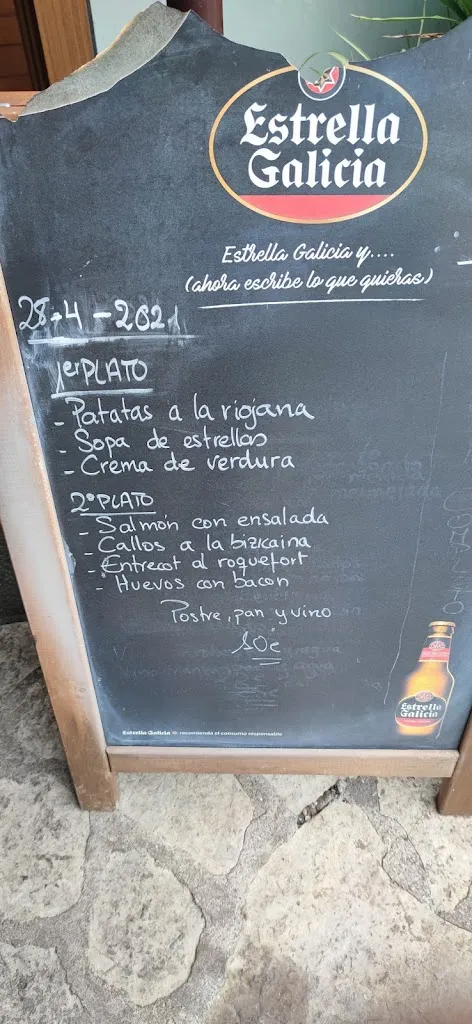 Estrella
Galicia
Estrella Galicia y....
(ahora escribe lo que quieras)
28-4-2021
1er PLATO
- Patatas a la riojana
- Sopa de estrellas
- Crema de verdura
2º PLATO
- Salmón con ensalada
- Callos a la bizkaina
- Entrecot al roquefort
- Huevos con bacon
Postre, pan y vino
10€
Estrella
Galicia
Estrella Galicia recomienda el consumo responsable